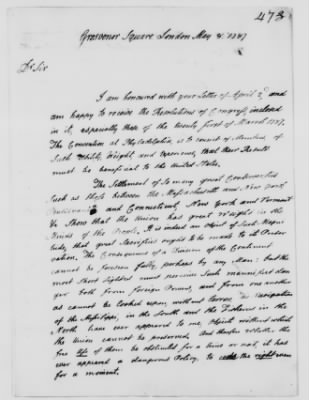 473
Grosvenor Square London May 8. 1787
Dr Sir
I am honoured with your Letter of April 2d and
am happy to receive the Resolutions of Congress, inclosed
in it, especially those of the twenty first of March 1787.
The Convention at Philadelphia, is to consist of Members, of
Such Ability, Weight, and Experience, that their Results
must be beneficial to the United States.
The Settlement of so many great Controversies
Such as those between the Massachusetts and New York
and Connecticut, New York and Vermont
Shew that the Union has great Weight in the
Minds of the People. It is indeed an Object of Such Magni
tude, that great Sacrifices ought to be made to its Preser
vation. The Consequences of a Division of the Continent
cannot be foreseen fully, perhaps by any Man: but the
most Short Sighted must perceive Such manifest dan
ger both from foreign Powers, and from one another
as cannot be looked upon without terror. The Navigation
of the Mississippi, in the South and the Fisheries in the
North have ever appeared to me, Objects without which
the Union cannot be preserved, and therefore whether the
free use of them be obstructed for a time or not, it has
ever appeared a dangerous Policy, to cede the right even
for a moment.